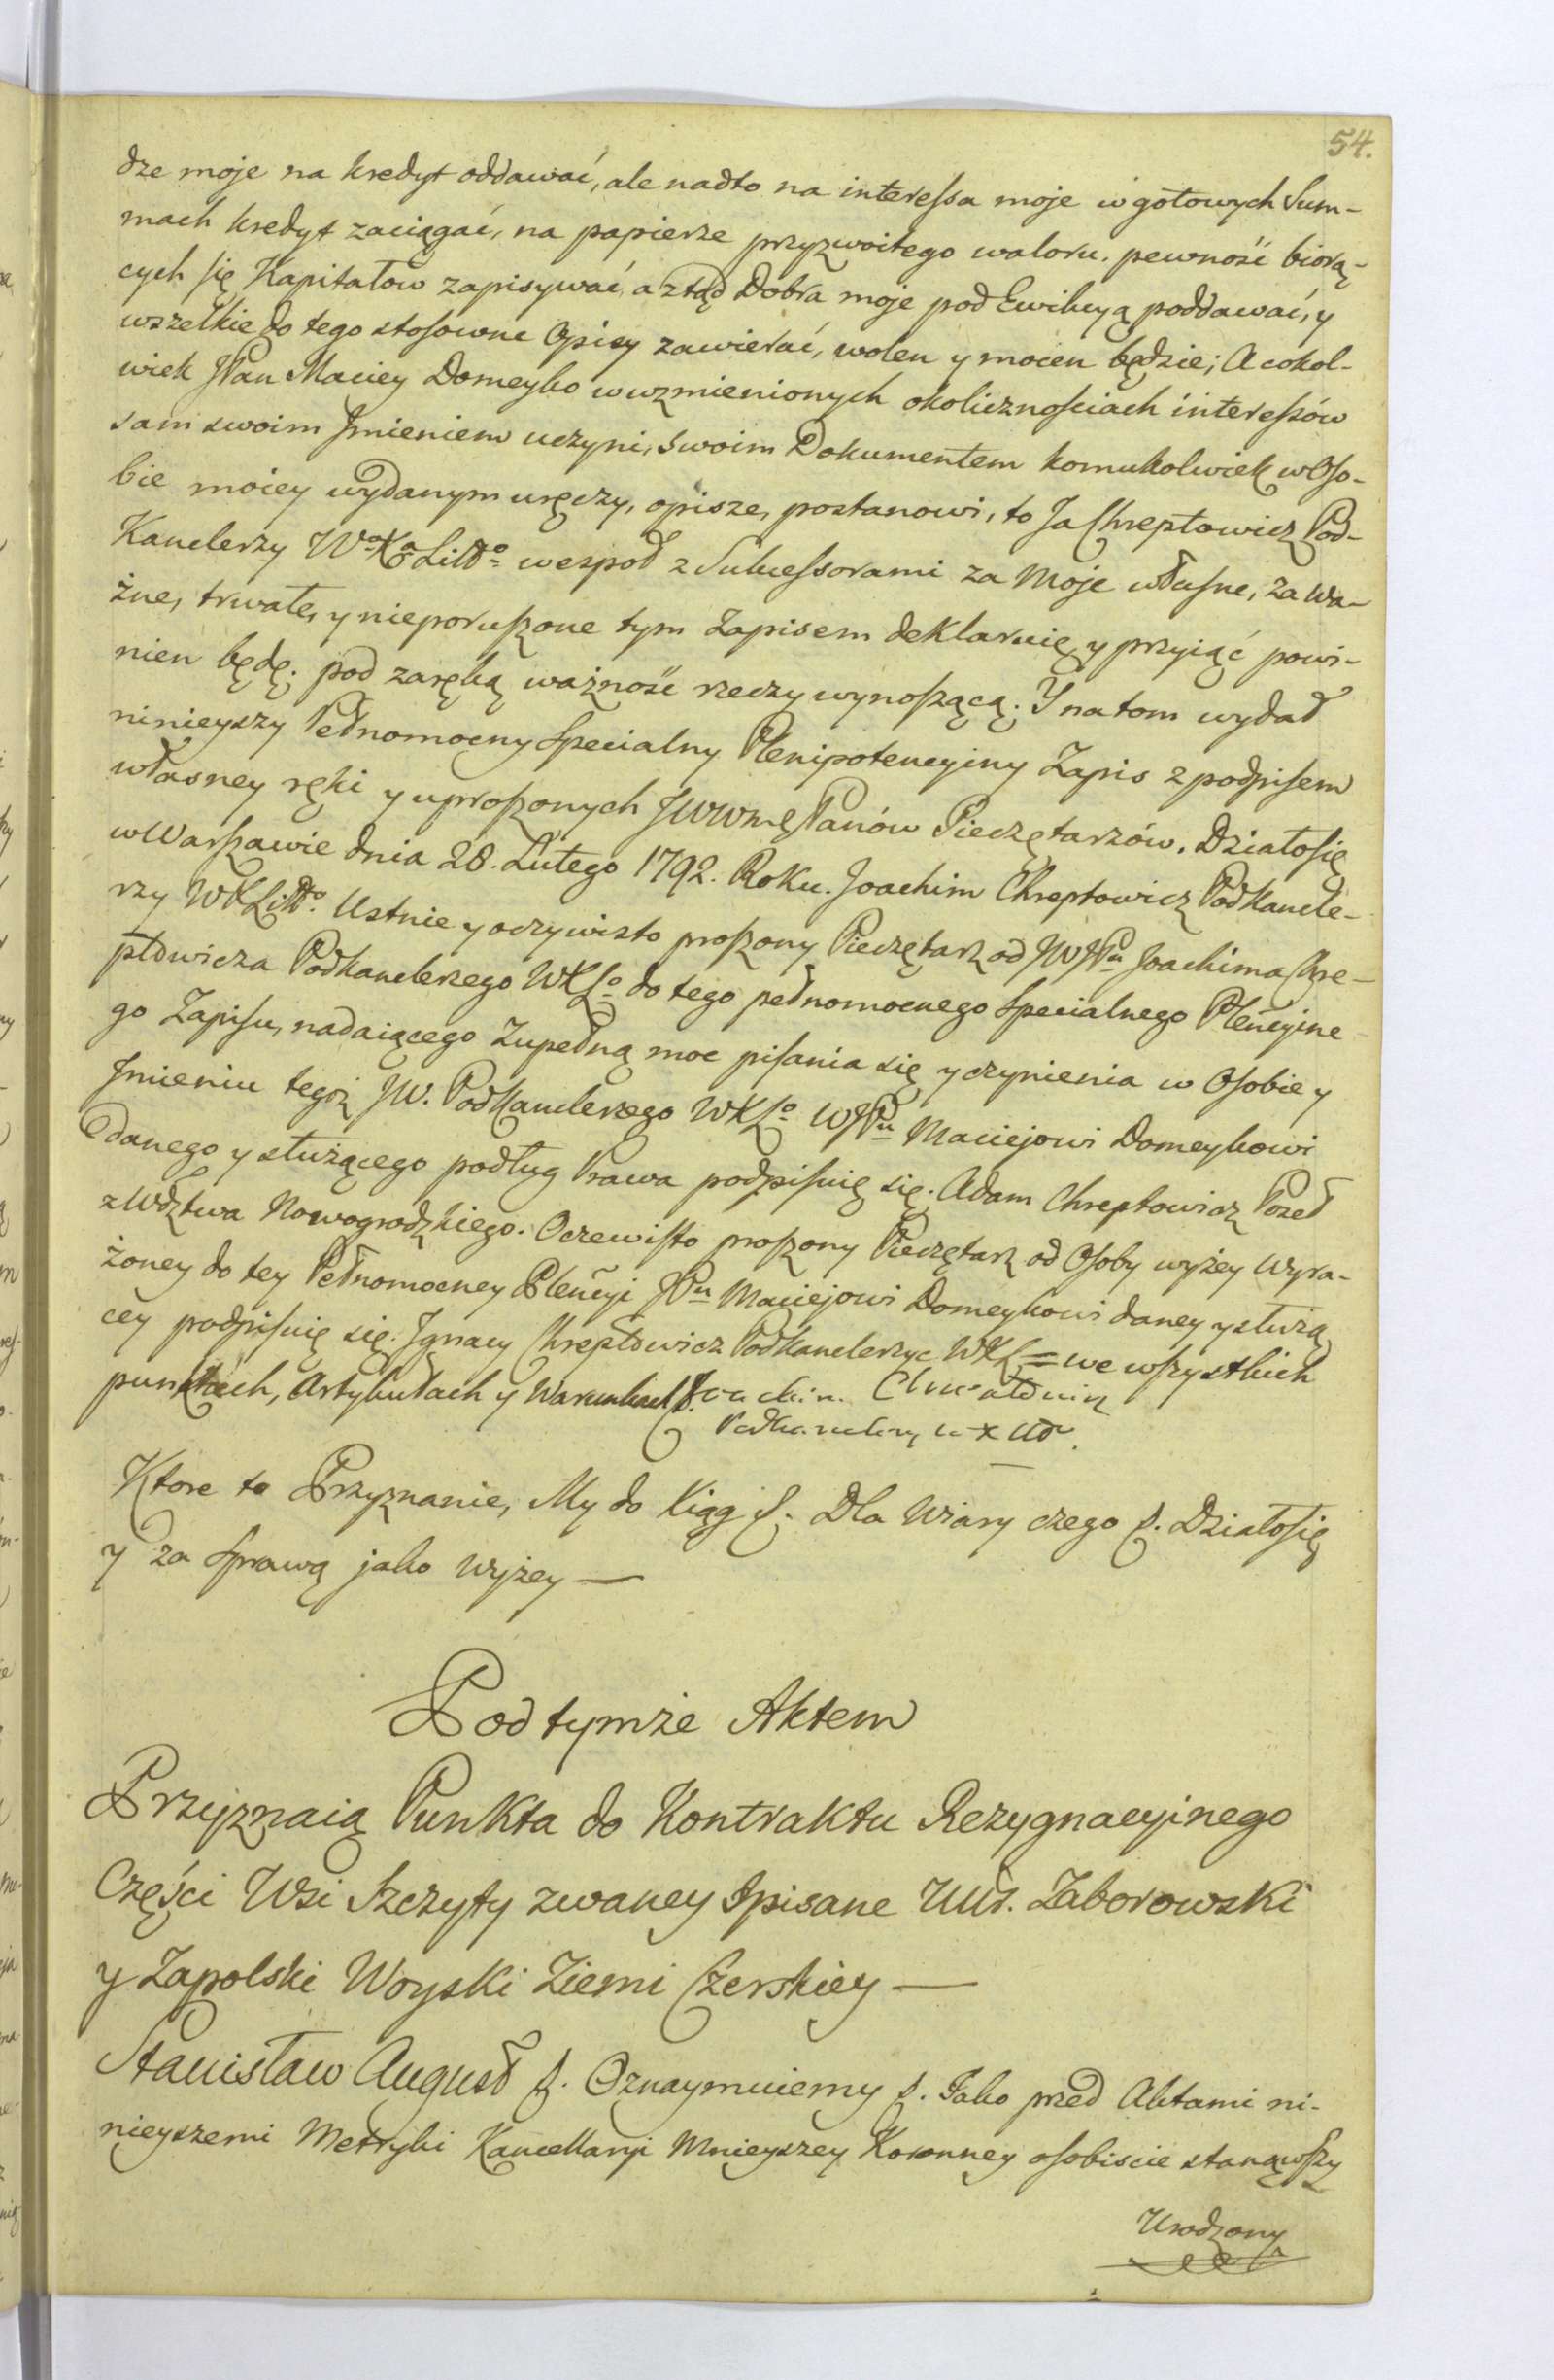 54.
dze moje na kredyt oddawać, ale nadto na interessa moje w gotowych Sum-
mach kredyt zaciągać, na papierze przyzwoitego waloru. pewność biorą-
cych się Kapitałow zapisywać, a ztąd Dobra moje pod Ewikcyą poddawać, y
wszelkie do tego stosowne Opisy zawierać, wolen y mocen będzie; A cokol-
wiek JPan Maciey Domeyko w wzmienionych okolicznościach interessów
sam swoim Jmieniem uczyni, swoim Dokumentem komukolwiek w Oso-
bie moiey wydanym uręczy, opisze, postanowi, to Ja Chreptowicz Pod-
Kanclerzy Wo Xa Litto wespoł z Sukcessorami za Moje własne, za wa-
żne, trwałe, y nieporuszone tym Zapisem deklaruię, y przyiąć powi-
nien będę; pod zaręką ważność rzeczy wynoszącą. Y na tom wydał
ninieyszy Pełnomocny Specialny Plenipotencyiny Zapis z podpisem
własney ręki y uproszonych JWWmć Panów Pieczętarzów. Działo się
w Warszawie dnia 28. Lutego 1792. Roku. Joachim Chreptowicz Podkancle-
rzy WXLitto. Ustnie y oczywisto proszony Pieczętarz od JWJPa Joachima Chre-
ptowicza Podkanclerzego WXLo do tego pełnomocnego Specialnego Plencyjne
go Zapisu, nadaiącego Zupełną moc pisania się y czynienia w Osobie y
Jmieniu tegoż JW. Podkanclerzego WXLo WJPu Maciejowi Domeykowi
danego y służącego podług Prawa podpisuię się. Adam Chreptowicz Poseł
z Wdztwa Nowogrodzkiego. Oczewisto proszony Pieczętarz od Osoby wyżey wyra-
żoney do tey Pełnomocney Plencyi JPu Maciejowi Domeykowi daney y służą
cey podpisuię się. Jgnacy Chreptowicz Podkanclerzyc WXL = we wszystkich
punktach, Artykułach y Warunkach Joachim Chreptowicz
Podkanclerzy W X Litt.
Ktore to Przyznanie, My do Xiąg &. Dla Wiary czego &. Działo się
y za Sprawą jako wyżey —
Pod tymże Aktem
Przyznaią Punkta do Kontraktu Rezygnacyjnego
Części Wsi Szczyty zwaney Spisane Uur. Zaborowski
y Zapolski Woyski Ziemi Czerskiey —
Stanisław August &. Oznaymuiemy &. Jako przed Aktami ni-
nieyszemi Metryki Kancellaryi Mnieyszey Koronney osobiscie stanąwszy
Urodzony